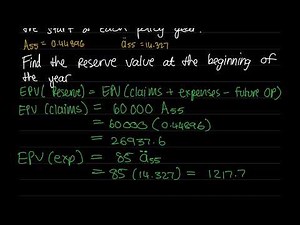 the start of each policy year.
A55 = 0.44896 ä55 = 14.327
Find the reserve value at the beginning of
the year
EPV( reserve) = EPV(claims + expenses - future OP)
EPV (claims) = 60000 A55
= 60000 (0.44896)
= 26937.6
EPV (exp) = 85 ä55
= 85 (14.327) = 1217.7